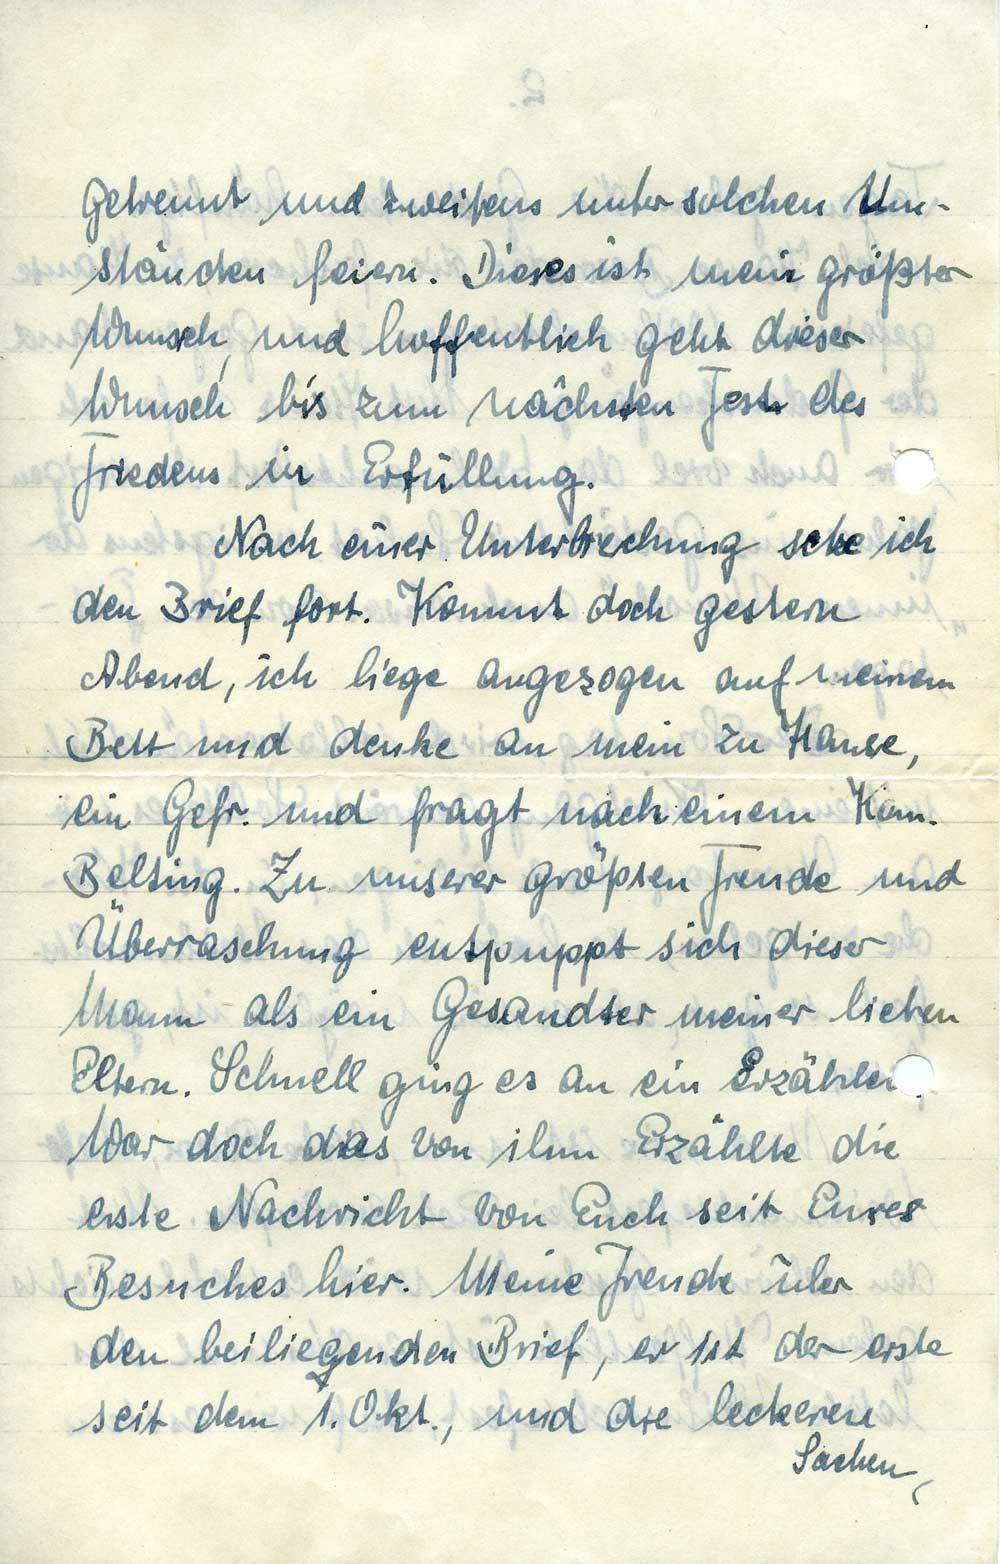 getrennt und zweitens unter solchen Um-
ständen feiern. Dieses ist mein größter
Wunsch, und hoffentlich geht dieser
Wunsch bis zum nächsten Fest des
Friedens in Erfüllung.
Nach einer Unterbrechung setze ich
den Brief fort. Kommt doch gestern
Abend, ich liege angezogen auf meinem
Bett und denke an mein zu Hause,
ein Gefr. und fragt nach einem Kan.
Belting. Zu unserer größten Freude und
Überraschung entpuppt sich dieser
Mann als ein Gesandter meiner lieben
Eltern. Schnell ging es an ein Erzählen.
War doch das von ihm Erzählte die
erste Nachricht von Euch seit Eures
Besuches hier. Meine Freude über
den beiliegenden Brief, er ist der erste
seit dem 1. Okt., und die leckeren
Sachen,